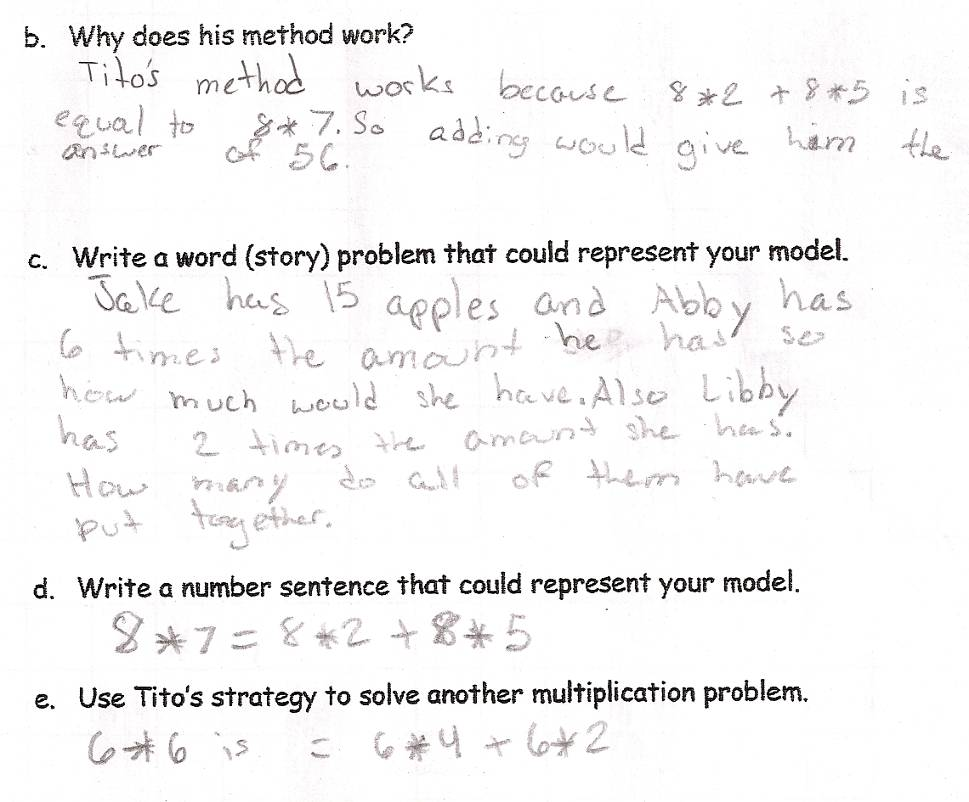 b. Why does his method work?
Tito's method works because 8*2 + 8*5 is
equal to 8*7. So adding would give him the
answer of 56.
c. Write a word (story) problem that could represent your model.
Jake has 15 apples and Abby has
6 times the amount he has so
how much would she have. Also Libby
has 2 times the amount she has.
How many do all of them have
put together.
d. Write a number sentence that could represent your model.
8*7 = 8*2 + 8*5
e. Use Tito's strategy to solve another multiplication problem.
6*6 is = 6*4 + 6*2